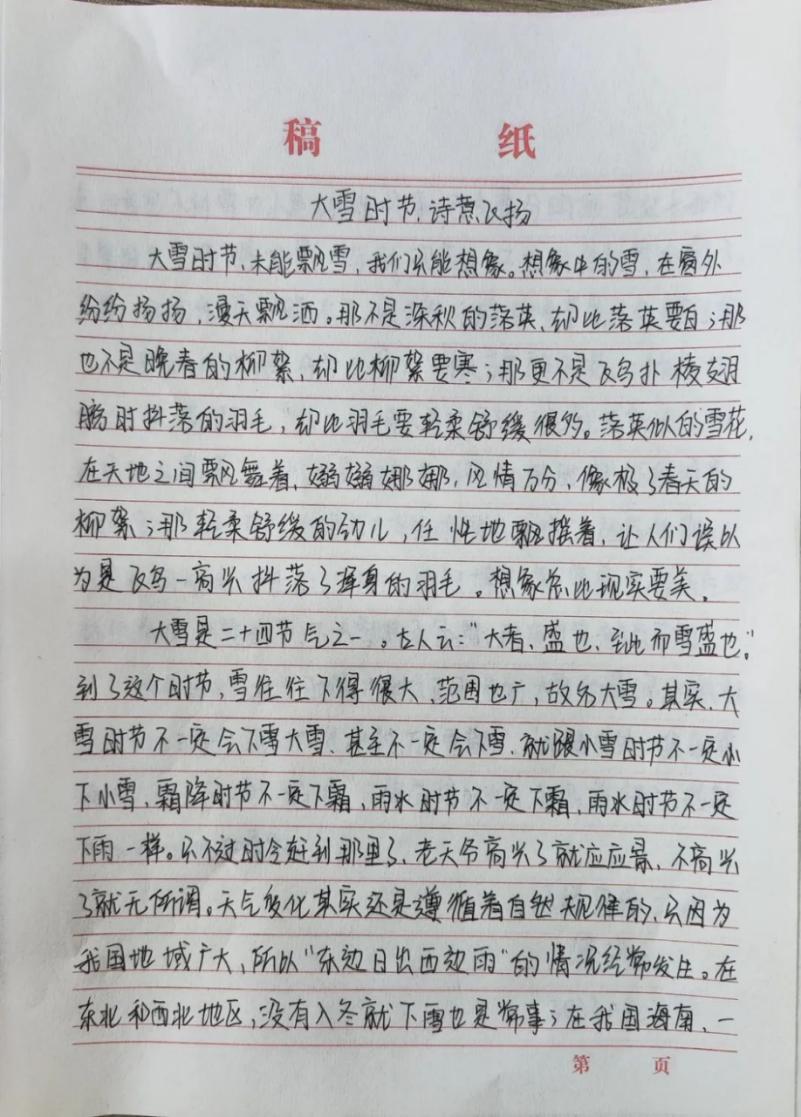 稿 纸
大雪时节,诗意飞扬
大雪时节,未能飘雪,我们只能想像。想像中的雪,在窗外
纷纷扬扬,漫天飘洒。那不是深秋的落英,却比落英要白;那
也不是晚春的柳絮,却比柳絮要寒;那更不是飞鸟扑棱翅
膀时抖落的羽毛,却比羽毛要轻柔舒缓很多。落英似的雪花,
在天地之间飘舞着,嫋嫋娜娜,风情万分,像极了春天的
柳絮;那轻柔舒缓的劲儿,任性地飘摇着,让人们误以
为是飞鸟一高兴抖落了浑身的羽毛。想象总比现实要美。
大雪是二十四节气之一。古人云:“大者,盛也,至此而雪盛也。”
到了这个时节,雪往往下得很大,范围也广,故名大雪。其实,大
雪时节不一定会下雪大雪,甚至不一定会下雪,就跟小雪时节不一定小
下小雪,霜降时节不一定下霜,雨水时节不一定下霜,雨水时节不一定
下雨一样。只不过时令赶到那里了,老天爷高兴了就应应景,不高兴
了就无所谓。天气变化其实还是遵循着自然规律的,只因为
我国地域广大,所以“东边日出西边雨”的情况经常发生。在
东北和西北地区,没有入冬就下雪也是常事;在我国海南,一
第 页